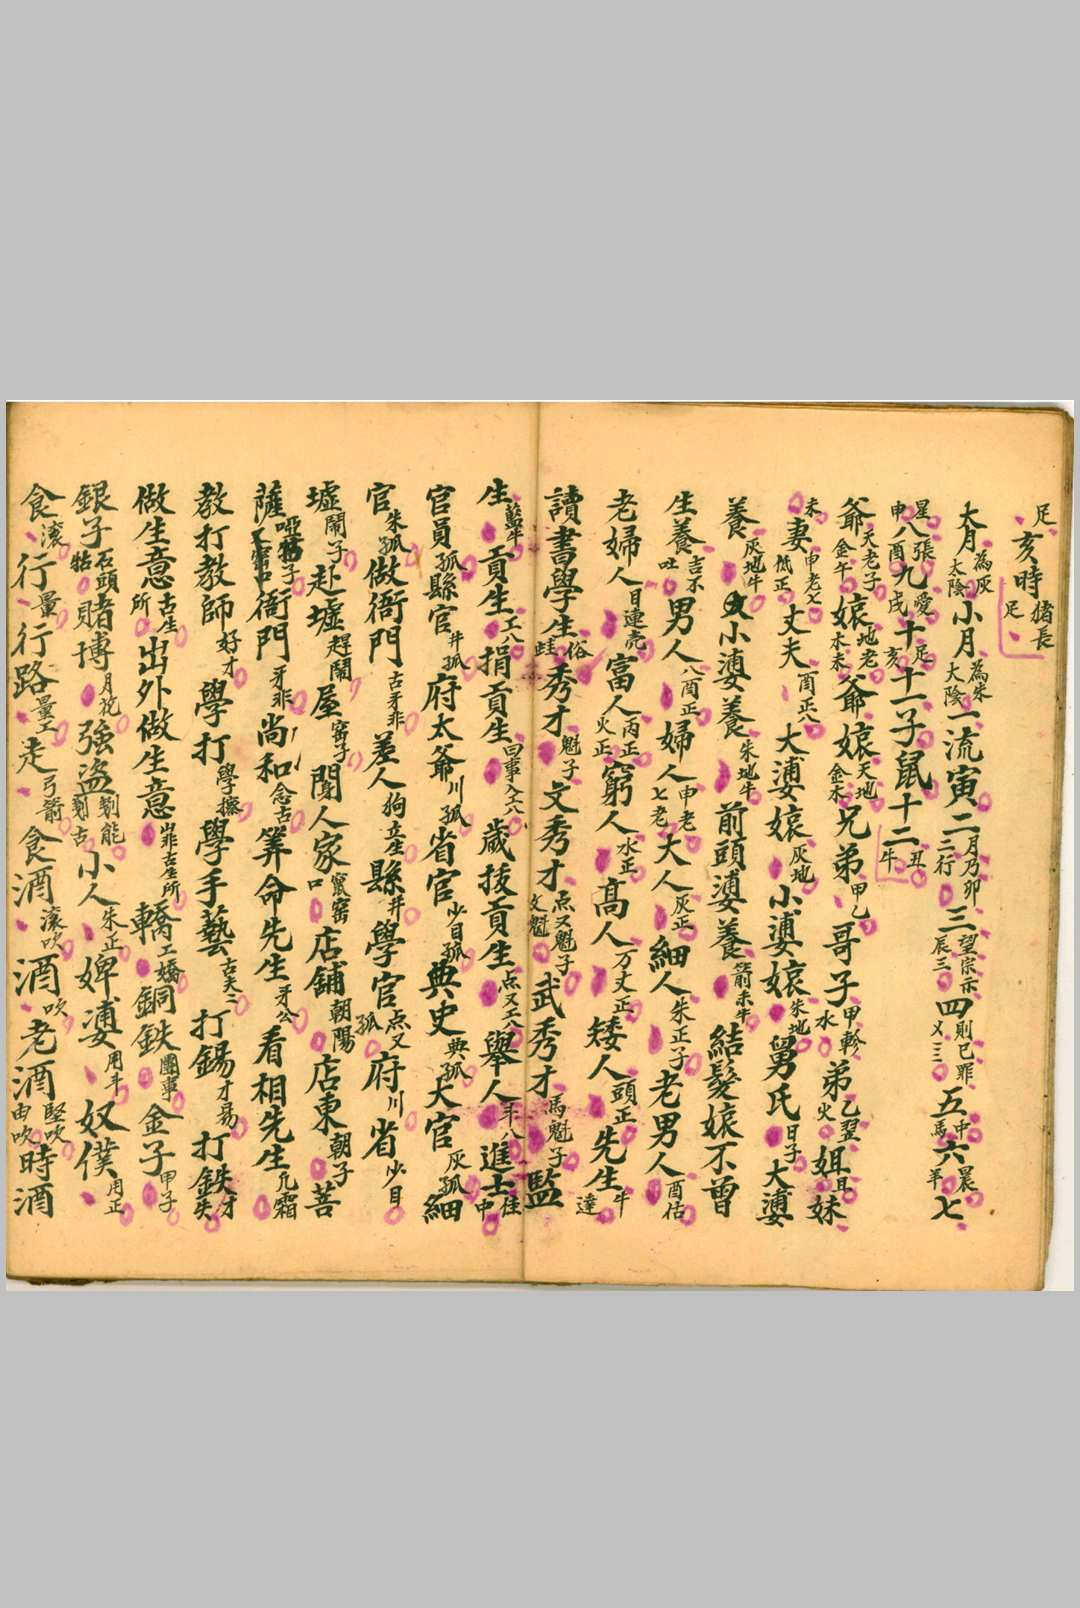 足 亥時 猪長 足
大月 為灰 太陰 小月 為朱 大陰 一流寅 二月乃卯 二行 三 望宗示 辰三 四 則已罪 五 中馬 六 晨羊 七
星申 八 張酉 九 愛戌 十 足亥 十一子鼠十二 丑牛
爺 天老子 金午 娘 地老 木未 爺娘 天地 金木 兄弟 甲乙 哥子 甲軫 水 弟 乙翌 火 姐 且 妹
未 妻 申老七 低正 丈夫 酉正八 大婆娘 灰地 小婆娘 朱地 舅氏 日子 大婆
養 灰地牛 小婆養 朱地牛 前頭婆養 箭未牛 結髮娘不曾
生養 吉不吐 男人 八酉正 婦人 申老七老 大人 灰正 細人 朱正子 老男人 酉估
老婦人 目連壳 富人 丙正 火正 窮人 水正 高人 万丈正 矮人 頭正 先生 牛達
讀書學生 俗畦 秀才 魁子 文秀才 点又魁子 文魁 武秀才 馬魁子 監
生 藍牛 貢生 工八 捐貢生 曰事入工八 歲拔貢生 点又工八 舉人 斗八 進士 佳中
官員 孤 縣官 井孤 府太爺 川孤 省官 少目孤 典史 典孤 大官 灰孤 細
官 朱孤 做衙門 古牙非 差人 狗立生 縣 井 學官 点又孤 府 川 省 少目
墟 鬧子 赴墟 趕鬧 屋 窑子 閏人家 窑口 店舖 朝陽 店東 朝子 菩
薩 啞牯子 衙門 牙非 尚和 念古 筭命先生 牙公 看相先生 几霜
教打教師 好才 學打 學擦 學手藝 古天二 打錫 才易 打鉄 才失
做生意 古生所 出外做生意 非古生所 轎 工嬌 銅鉄 團事 金子 甲子
銀子 石頭牯 賭博 月花 強盜 剗能 剗古 小人 朱正 婢婆 用斗 奴僕 用正
食 滚 行 量 行路 量工 走 弓箭 食酒 滚吹 酒 吹 老酒 堅吹 由吹 時酒